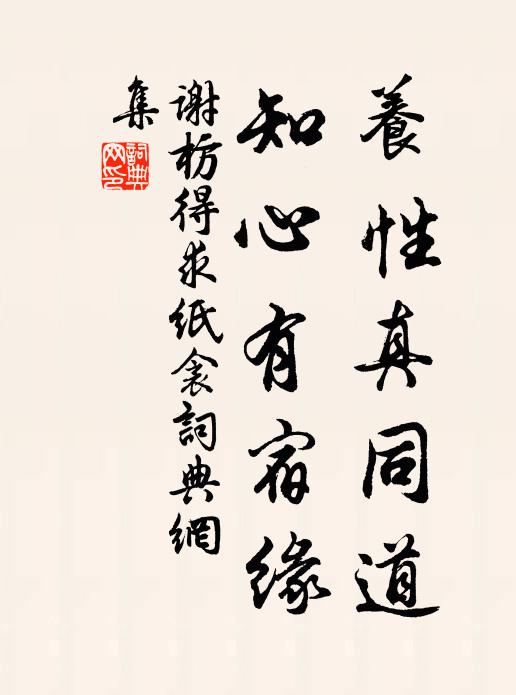 養性真同道
知心有宿緣
謝枋得求紙衾詞典網
集
詞典
网印